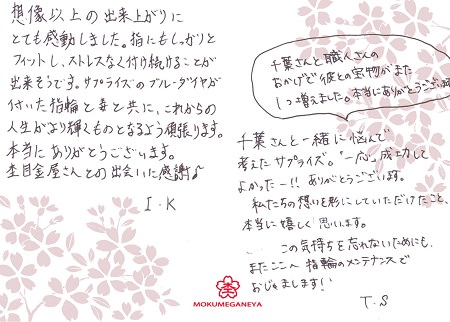 想像以上の出来上がりに
とても感動しました。指にもしっかりと
フィットし、ストレスなく付け続けることが
出来そうです。サプライズのブルーダイヤが
付いた指輪と妻と共に、これからの
人生がより輝くものとなるよう頑張ります。
本当にありがとうございます。
杢目金屋さんとの出会いに感謝♪
I.K
千葉さんと職人さんの
おかげで彼との宝物がまた
1つ増えました。本当にありがとうございます
千葉さんと一緒に悩んで
考えたサプライズ。"一応"成功して
よかったー!! ありがとうございます。
私たちの想いを形にしていただけたこと、
本当に嬉しく思います。
この気持ちを忘れないためにも、
またここへ指輪のメンテナンスで
おじゃまします!
T.S
MOKUMEGANEYA